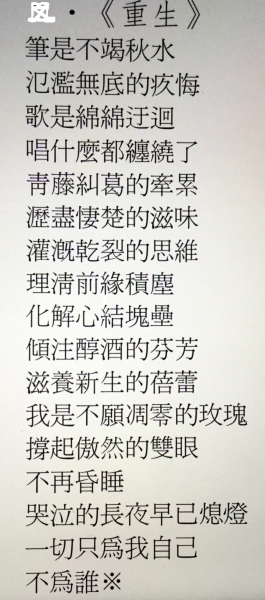 ・《重生》
筆是不竭秋水
氾濫無底的疚悔
歌是綿綿迂迴
唱什麼都纏繞了
靑藤糾葛的牽累
瀝盡悽楚的滋味
灌漑乾裂的思維
理淸前緣積塵
化解心結塊壘
傾注醇酒的芬芳
滋養新生的蓓蕾
我是不願凋零的玫瑰
撐起傲然的雙眼
不再昏睡
哭泣的長夜早已熄燈
一切只爲我自己
不爲誰※